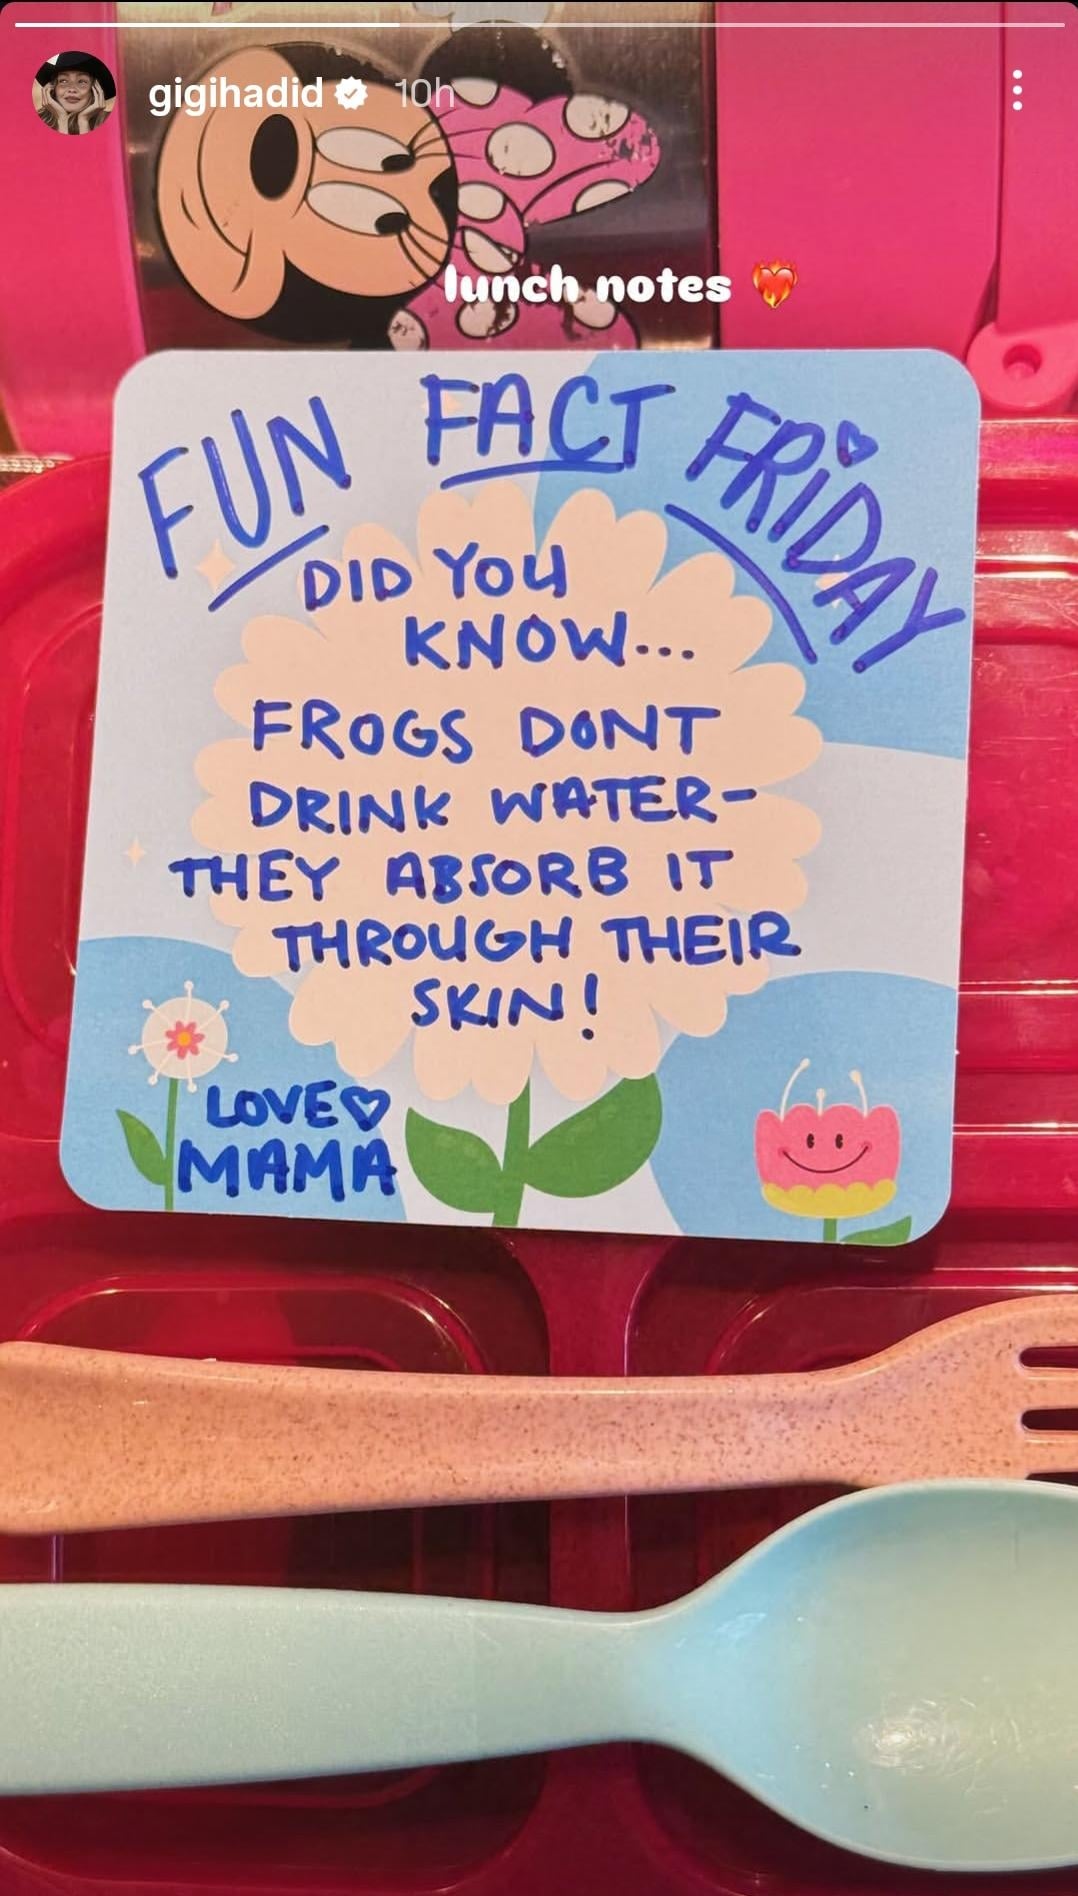 gigihadid 10h
lunch notes ❤️‍🔥
FUN FACT FRiDAY
DID YOU
KNOW...
FROGS DONT
DRINK WATER-
THEY ABSORB IT
THROUGH THEIR
SKIN!
LOVE♡
MAMA